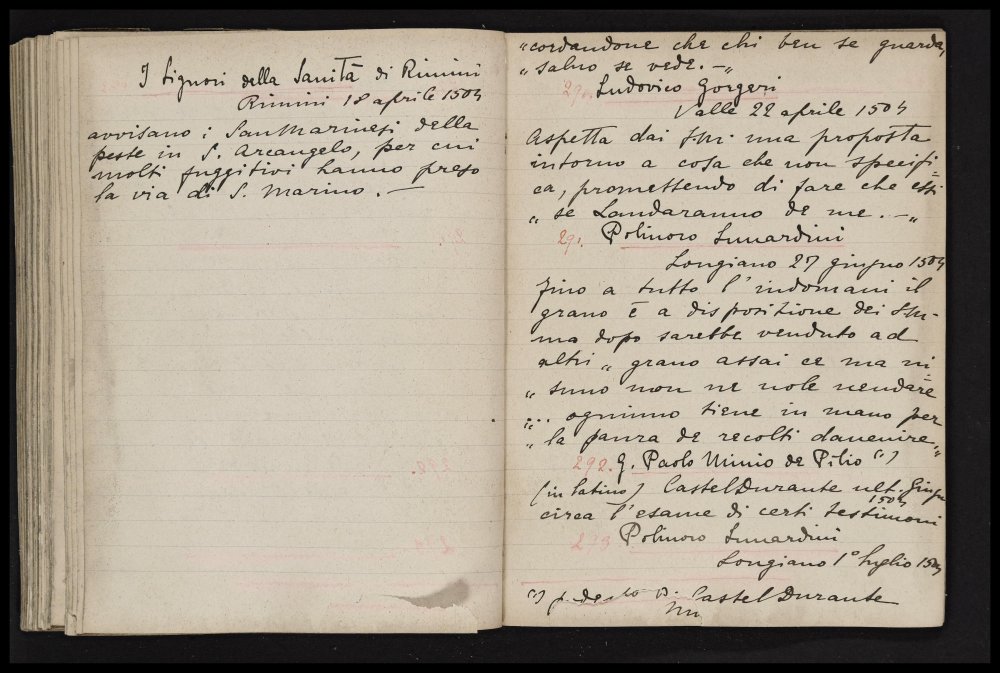 I Signori della Sanità di Rimini
Rimini 18 aprile 1504
avvisano i SanMarinesi della
peste in S. Arcangelo, per cui
molti fuggitivi hanno preso
la via di S. Marino. —
"cordandone che chi ben se guarda,
" salvo se vede. — "
290. Ludovico Gorgeri
Valle 22 aprile 1504
Aspetta dai SM una proposta
intorno a cosa che non specifi=
ca, promettendo di fare che essi
" se Laudaranno de me. — "
291. Polinoro Lunardini
Longiano 27 giugno 1504
fino a tutto l'indomani il
grano è a disposizione dei SM -
ma dopo sarebbe venduto ad
altri " grano assai ce ma ni=
" suno non ne vole vendare
"... ogniuno tiene in mano per
" la paura de recolti davenire "
292. G. Paolo Minio de Pilio (1)
(in latino) CastelDurante ult. Giugno
1504
circa l'esame di certi testimoni
293 Polinoro Lunardini
Longiano 1° luglio 1504
(1) Castel Durante